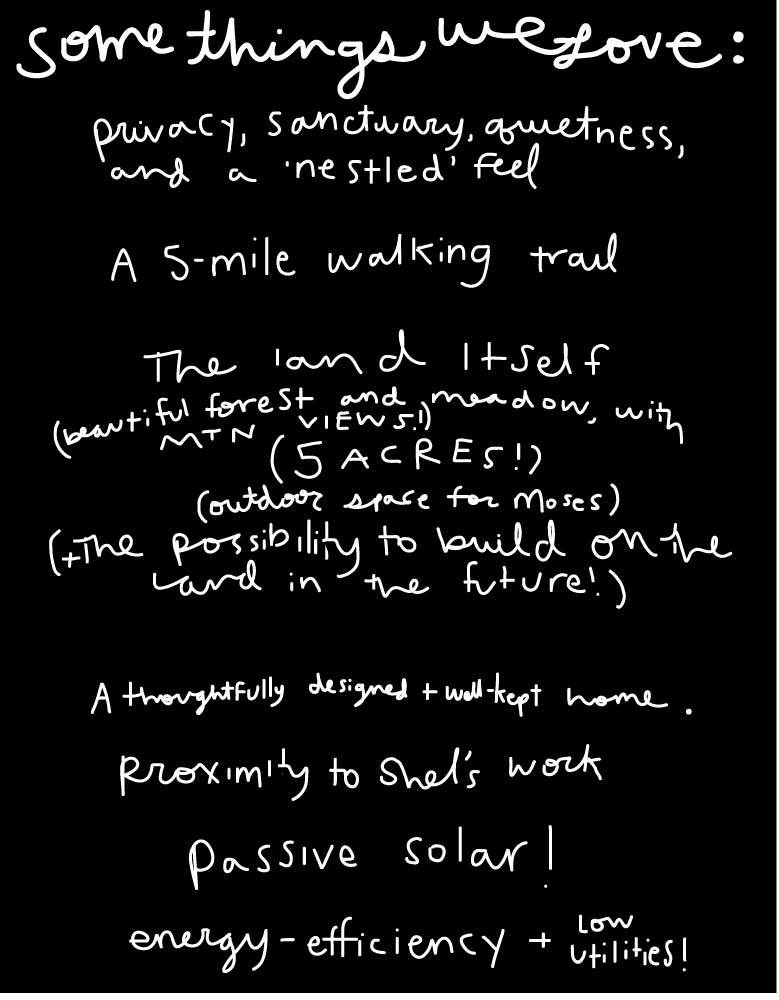 some things we love:
privacy, sanctuary, quietness,
and a 'nestled' feel
A 5-mile walking trail
The land itself
(beautiful forest and meadow, with
MTN VIEWS!)
(5 ACRES!)
(outdoor space for Moses)
(+The possibility to build on the
land in the future!)
A thoughtfully designed + well-kept home.
Proximity to Shel's work
passive solar!
energy-efficiency + LOW
utilities!